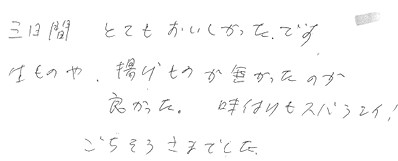 三日間 とても おいしかった.です
生ものや、揚げものが無かったのが
良かった。 味付けもスバラシイ!
ごちそうさまでした